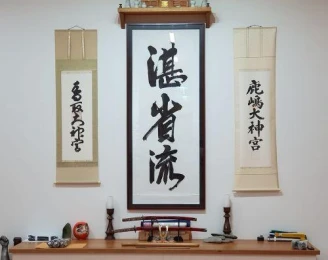 鹿嶋大神宮
湛省流
香取大神宮